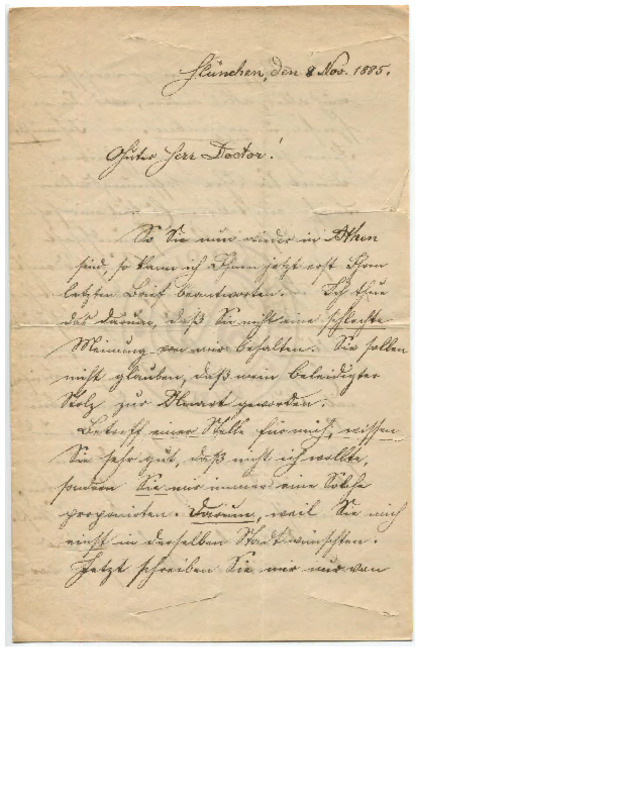 München, den 8 Nov. 1885.
Guter Herr Doctor!
So Sie nun wieder in Athen
sind, so kann ich Ihnen jetzt erst Ihren
letzten Brief beantworten. Ich thue
das darum, daß Sie nicht eine schlechte
Meinung von mir behalten. Sie sollen
nicht glauben, daß mein beleidigter
Stolz zur Unart geworden.
Betreff einer Stelle für mich, wissen
Sie sehr gut, daß nicht ich wollte,
sondern Sie mir immer eine Solche
proponirten. Darum, weil Sie mich
in derselben Stadt wünschten.
Jetzt schreiben Sie mir nur von